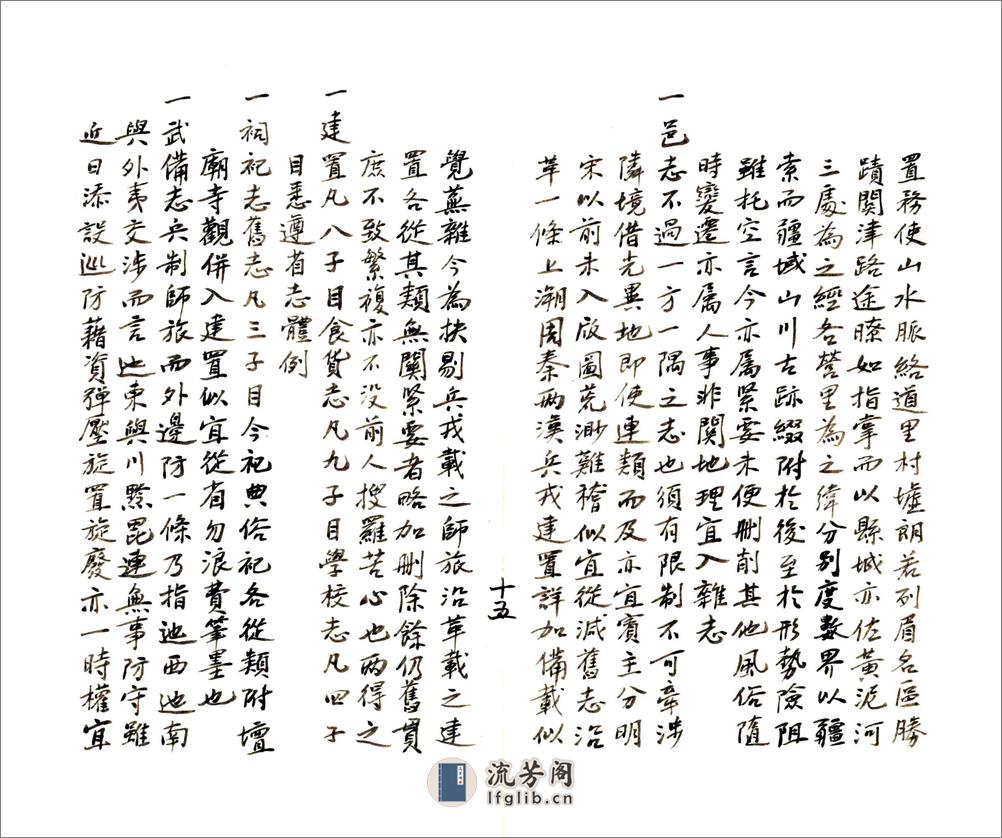 置務使山水脈絡道里村墟朗若列眉名區勝
蹟關津路途瞭如指掌而以縣城亦佐黃泥河
三處為之經各營里為之緯分別度數界以疆
索而疆域山川古跡綴附於後至於形勢險阻
雖托空言今亦属緊要未便刪削其他風俗隨
時變遷亦属人事非関地理宜入雜志
一邑志不過一方一隅之志也須有限制不可牽涉
隣境借光異地即使連類而及亦宜賓主分明
宋以前未入版圖荒渺難稽似宜從減舊志沿
革一條上溯周秦两漢兵戎建置詳加備載似
十五
覺蕪雜今為抉剔兵戎載之師旅沿革載之建
置各從其類無關緊要者略加刪除餘仍舊貫
庶不致繁複亦不没前人搜羅苦心也两得之
一建置凡八子目食貨志凡九子目學校志凡四子
目悉遵省志體例
一祠祀志舊志凡三子目今祀典俗祀各從類附壇
廟寺觀併入建置似宜從省勿浪費筆墨也
一武備志兵制師旅而外邊防一條乃指迤西迤南
與外夷交涉而言迤東與川黔毘連無事防守雖
近日添設巡防藉資彈壓旋置旋廢亦一時權宜
流芳阁
lfglib.cn